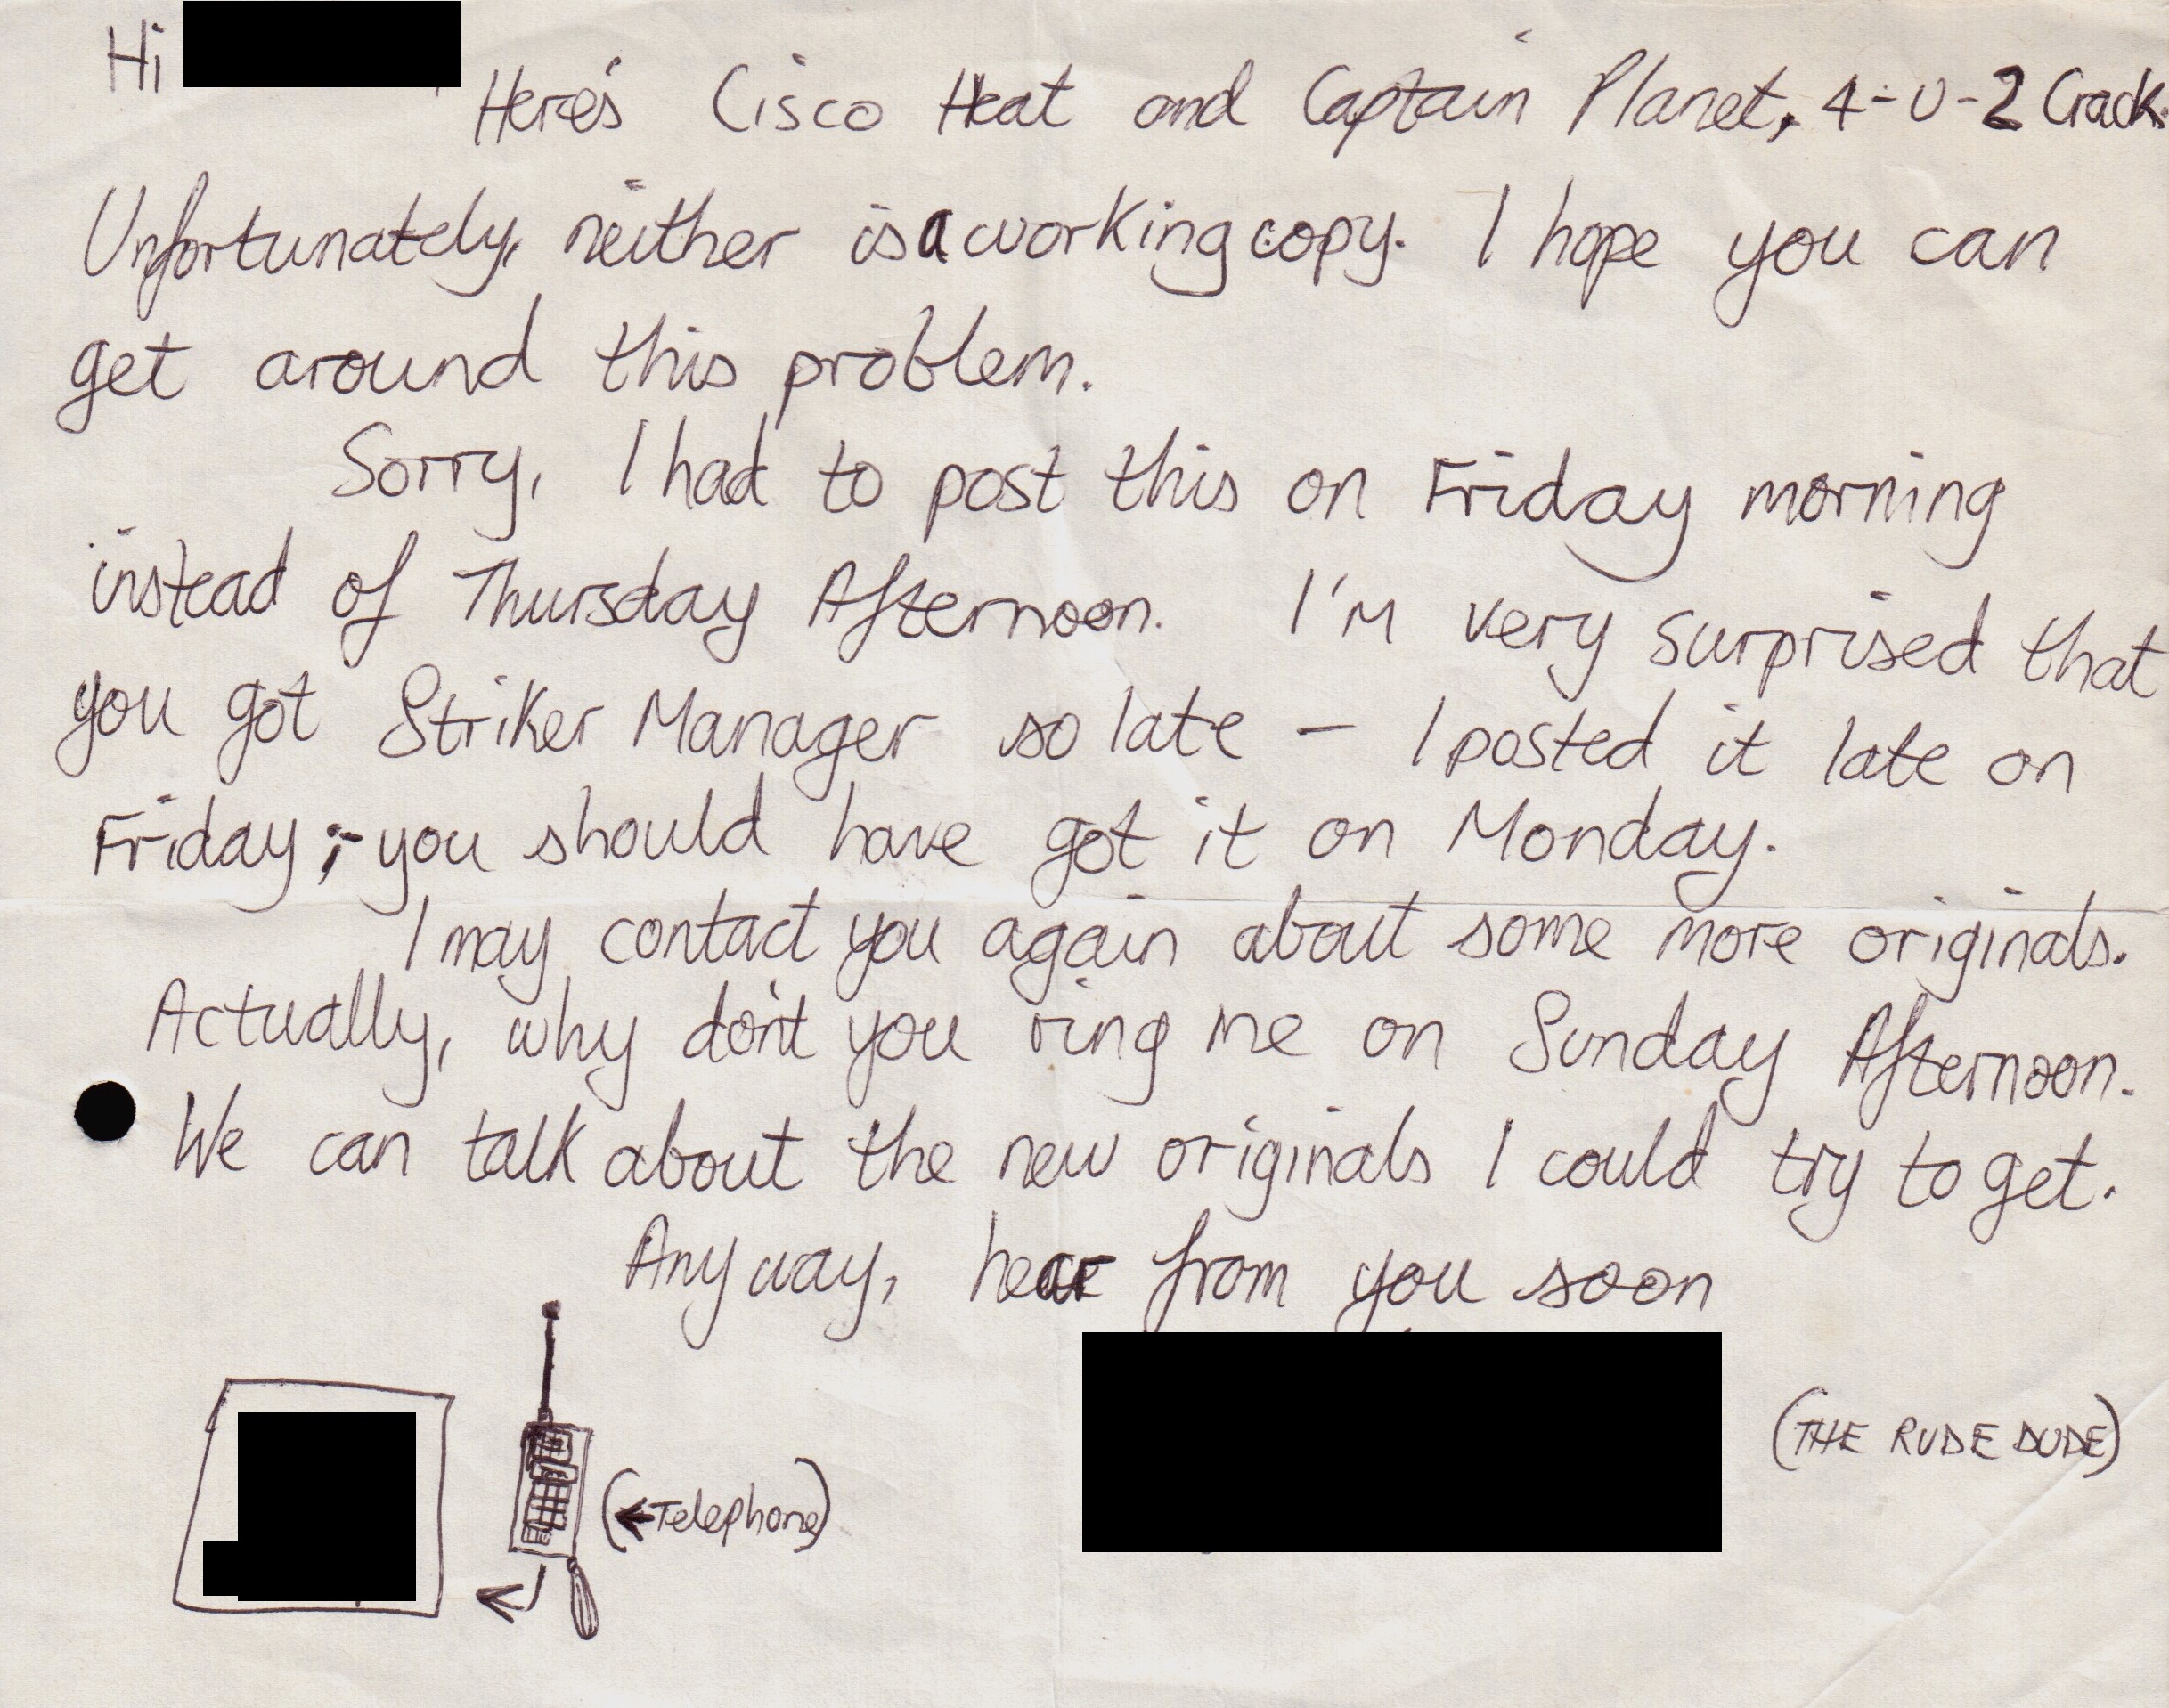 Hi
Here's Cisco Heat and Captain Planet, 4-U-2 Crack.
Unfortunately, neither is a working copy. I hope you can
get around this problem.
Sorry, I had to post this on Friday morning
instead of Thursday Afternoon. I'M very surprised that
you got Striker Manager so late – I posted it late on
Friday ;- you should have got it on Monday.
I may contact you again about some more originals.
Actually, why don't you ring me on Sunday Afternoon.
We can talk about the new originals I could try to get.
Anyway, hear from you soon
(THE RUDE DUDE)
(←Telephone)